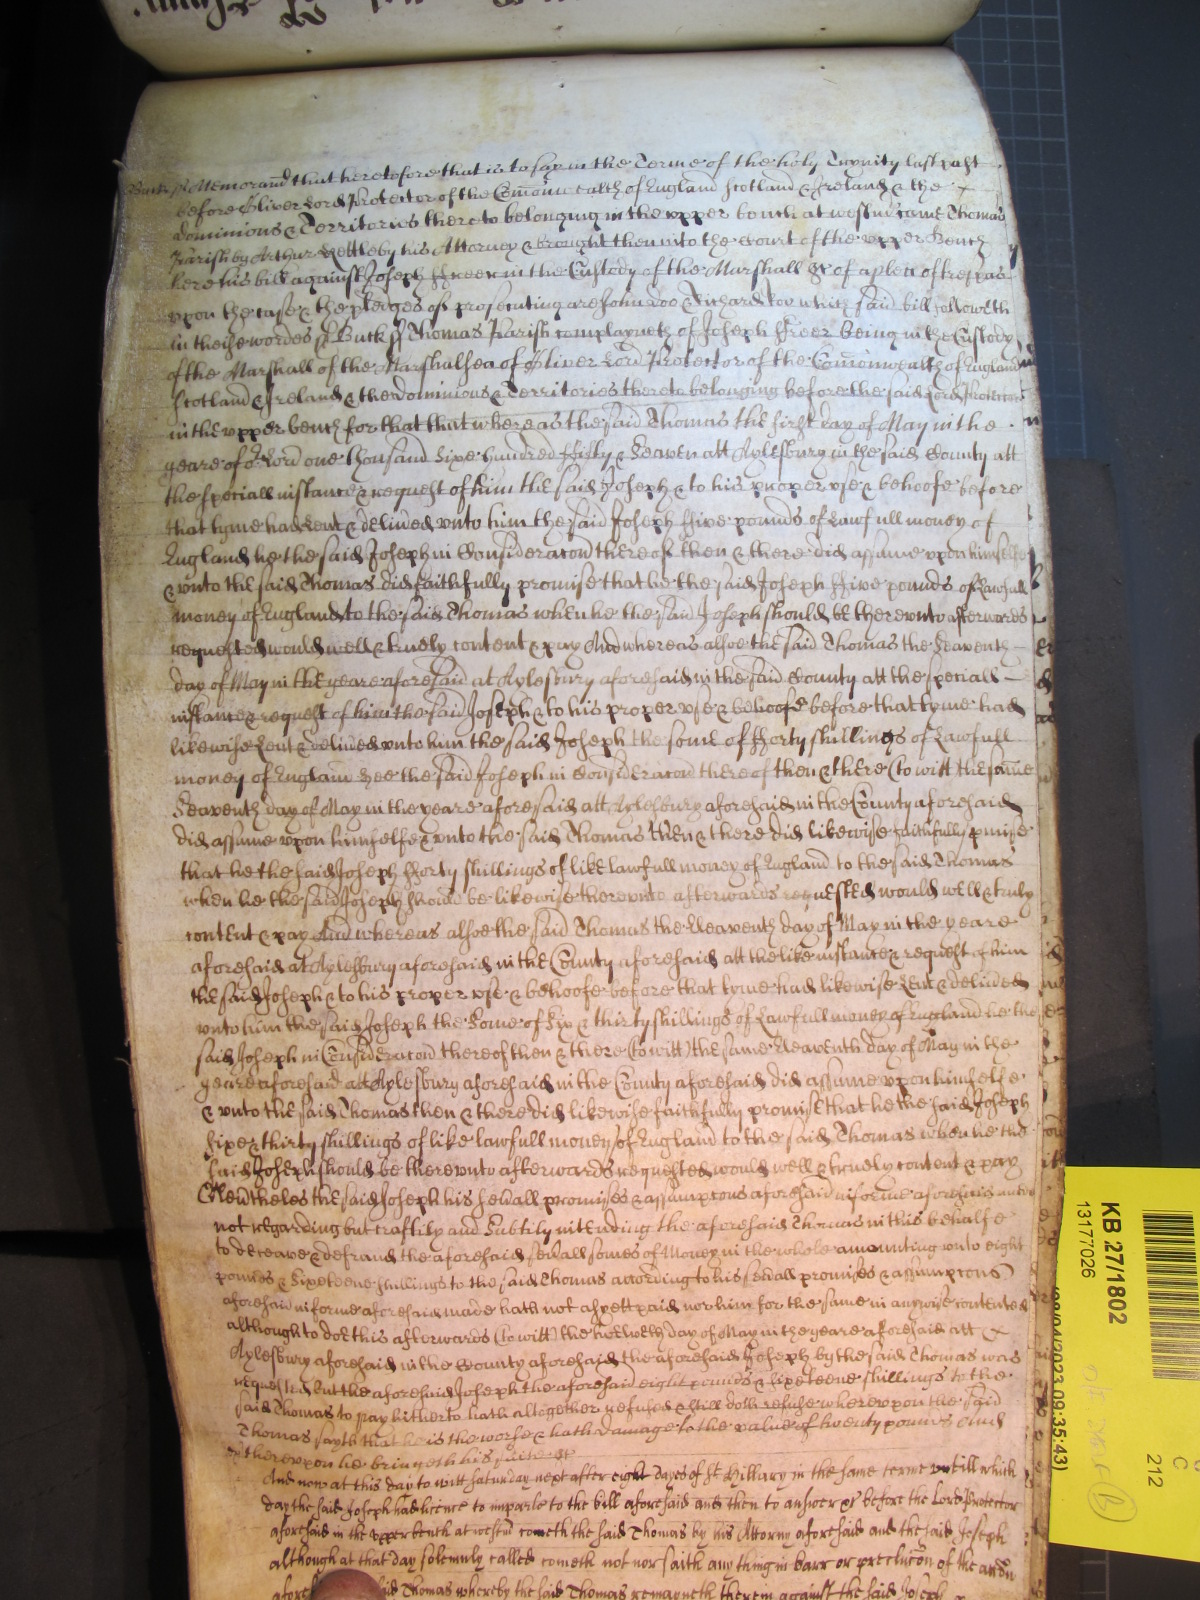 Bucks ss Memorand that heretofore that is to say in the Terme of the holy Trynity last past
before Oliver Lord Protector of the Comonwealth of England Scotland & Ireland & the
dominions & Territories thereto belonging in the upper bench at westm came Thomas
Parish by Arthur his Attorney & brought then into the Court of the upper Bench
here his bill against Joseph ffreer in the Custody of the Marshall &c of a plea of trespas
upon the case & the pledges of prosecuting are John Doo & Richard Roo which said bill followeth
in theise wordes ss Buck ss Thomas Parish complayneth of Joseph ffreer being in the Custody
of the Marshall of the Marshalsea of Oliver Lord Protector of the Comonwealth of England
Scotland & Ireland & the Dominions & Territories thereto belonging before the said Lord Protector
in the upper bench for that that whereas the said Thomas the first day of May in the
yeare of or Lord one thousand Sixe hundred ffifty & Seaven att Aylesbury in the said County att
the speciall instance & request of him the said Joseph & to his proper use & behoofe before
that tyme had Lent & delived unto him the said Joseph ffive pounds of Lawfull money of
England he the said Joseph in Consideracon thereof then & there did assume upon himselfe
& unto the said Thomas did faithfully promise that he the said Joseph ffive pounds of Lawfull
money of England to the said Thomas when he the said Joseph should be thereunto afterwards
requested would well & truely content & pay And whereas alsoe the said Thomas the Seaventh
day of May in the yeare aforesaid at Aylesbury aforesaid in the said County att the speciall
instance & request of him the said Joseph & to his proper use & behoofe before that tyme had
likewise Lent & delived unto him the said Joseph the some of fforty shillings of Lawfull
money of England hee the said Joseph in Consideracon thereof then & there (to witt) the same
Seaventh day of May in the yeare aforesaid att Aylesbury aforesaid in the County aforesaid
did assume upon himselfe & unto the said Thomas then & there did likewise faithfully pmise
that he the said Joseph fforty shillings of like lawfull money of England to the said Thomas
when he the said Joseph should be likewise thereunto afterwards requested would well & truly
content & pay And whereas alsoe the said Thomas the Eleaventh day of May in the yeare
aforesaid at Aylesbury aforesaid in the County aforesaid att the like instance & request of him
the said Joseph & to his proper use & behoofe before that tyme had likewise Lent & delived
unto him the said Joseph the Some of Six & thirty shillings of Lawfull money of England he the
said Joseph in Consideracon thereof then & there (to witt) the same Eleaventh day of May in the
yeare aforesaid att Aylesbury aforesaid in the County aforesaid did assume upon himselfe
& unto the said Thomas then & there did likewise faithfully promise that he the said Joseph
Sixe & thirty shillings of like lawfull money of England to the said Thomas when he the
said Joseph should be thereunto afterwards requested would well & truely content & pay
Nevtheles the said Joseph his sevall promises & assumpcons aforesaid in forme aforesaid made
not regarding but craftily and Subtily intending the aforesaid Thomas in this behalfe
to deceave & defraud the aforesaid sevall somes of Money in the whole amounting unto eight
pounds & Sixeteene shillings to the said Thomas according to his sevall promises & assumpcons
aforesaid in forme aforesaid made hath not as yett paid nor him for the same in anywise contented
although to doe this afterwards (to witt) the twelveth day of May in the yeare aforesaid att
Aylesbury aforesaid in the County aforesaid the aforesaid Joseph by the said Thomas was
requested but the aforesaid Joseph the aforesaid eight pounds & sixeteene shillings to the
said Thomas to pay hitherto hath altogether refused & still doth refuse whereupon the said
Thomas sayth that he is the worse & hath Damage to the value of twenty pounds And
thereupon he bringeth his suite &c
And now at this day to witt Saturday next after eight dayes of St Hillary in the same terme untill which
day the said Joseph had licence to imparle to the bill aforesaid and then to answer &c before the Lord Protector
aforesaid in the upper bench at westm cometh the said Thomas by his Attorny aforesaid and the said Joseph
although at that day solemnly called cometh not nor saith any thing in barr or preclucon of the
said Thomas whereby the said Thomas remayneth therein against the said Joseph
KB 27/1802
13177026
09:35:43)
C
212